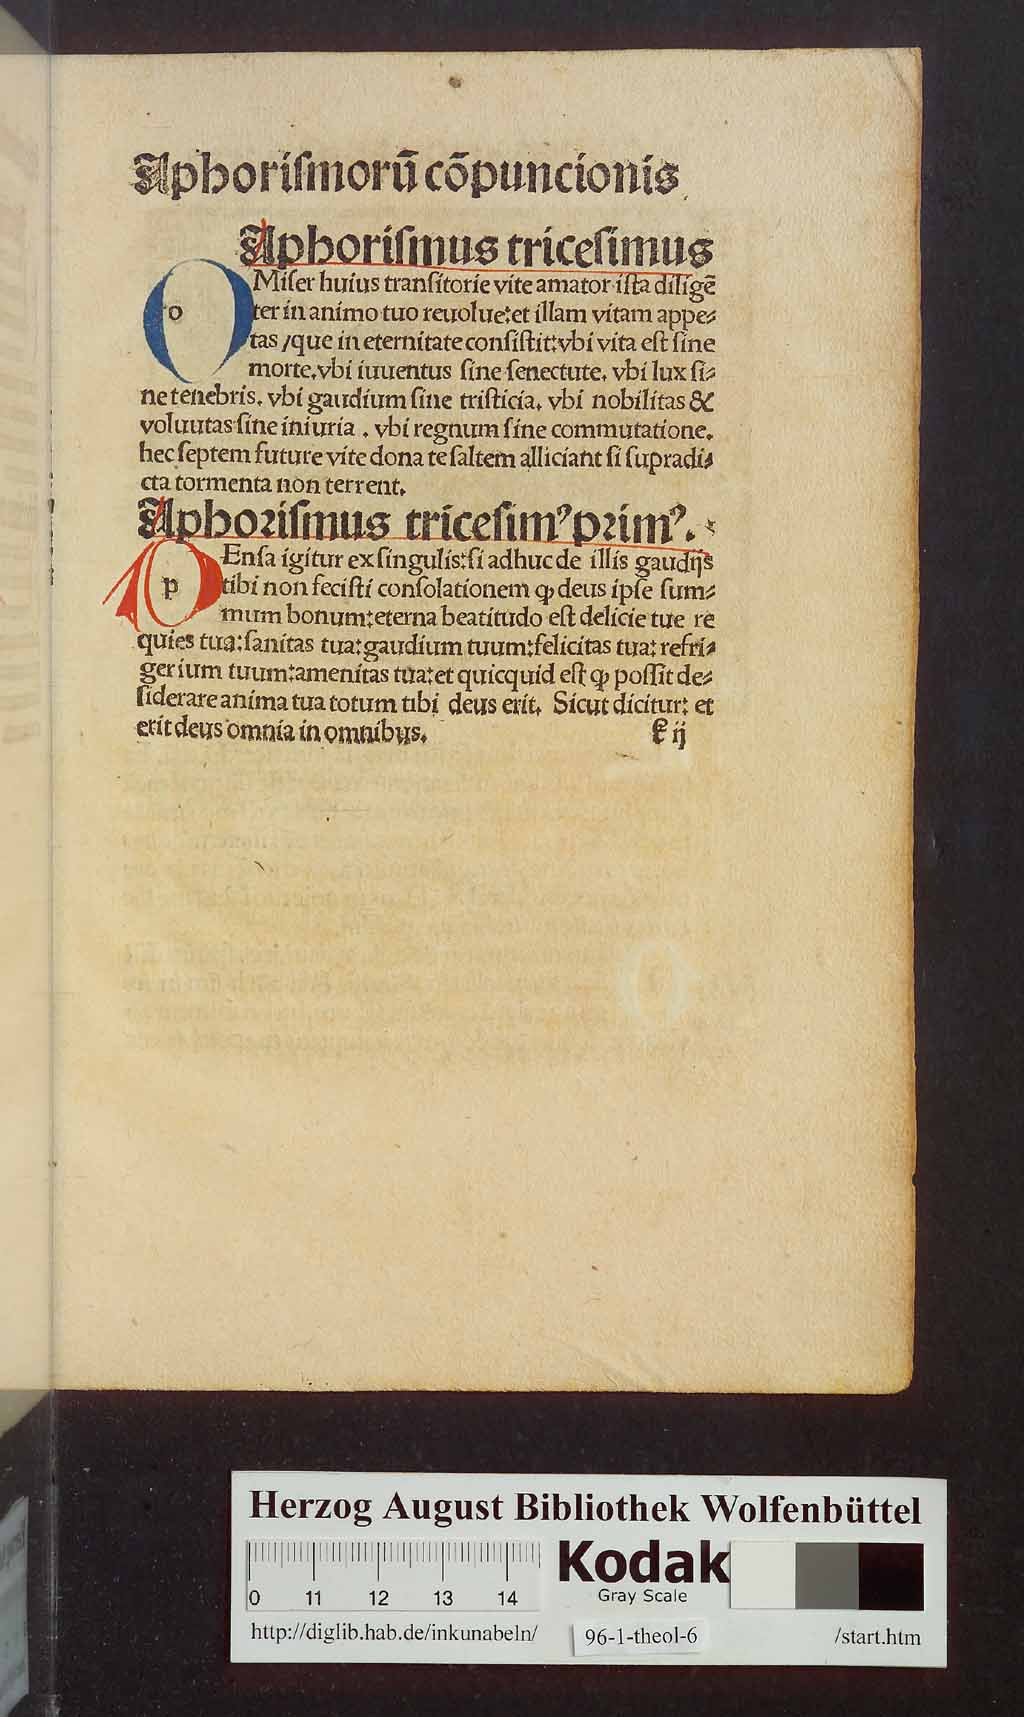 Aphoriſmorū cōpuncionis
Aphoriſmus triceſimus
O Miſer huius tranſitorie vite amator iſta diligē
ter in animo tuo reuolue: et illam vitam appe⸗
tas / que in eternitate conſiſtit: vbi vita eſt ſine
morte. vbi iuuentus ſine ſenectute. vbi lux ſi⸗
ne tenebris. vbi gaudium ſine triſticia. vbi nobilitas &
voluutas ſine iniuria . vbi regnum ſine commutatione.
hec ſeptem future vite dona te ſaltem alliciant ſi ſupradi⸗
cta tormenta non terrent.
Aphoriſmus triceſimꝰ primꝰ.
P Enſa igitur ex ſingulis: ſi adhuc de illis gaudijs
tibi non feciſti conſolationem ꝙ deus ipſe ſum⸗
mum bonum: eterna beatitudo eſt delicie tue re
quies tua: ſanitas tua: gaudium tuum: felicitas tua: refri⸗
gerium tuum: amenitas tua: et quicquid eſt ꝙ poſſit de⸗
ſiderare anima tua totum tibi deus erit. Sicut dicitur: et
erit deus omnia in omnibus. k ij
Herzog August Bibliothek Wolfenbüttel
0 11 12 13 14
Kodak
Gray Scale
http://diglib.hab.de/inkunabeln/ 96-1-theol-6 /start.htm